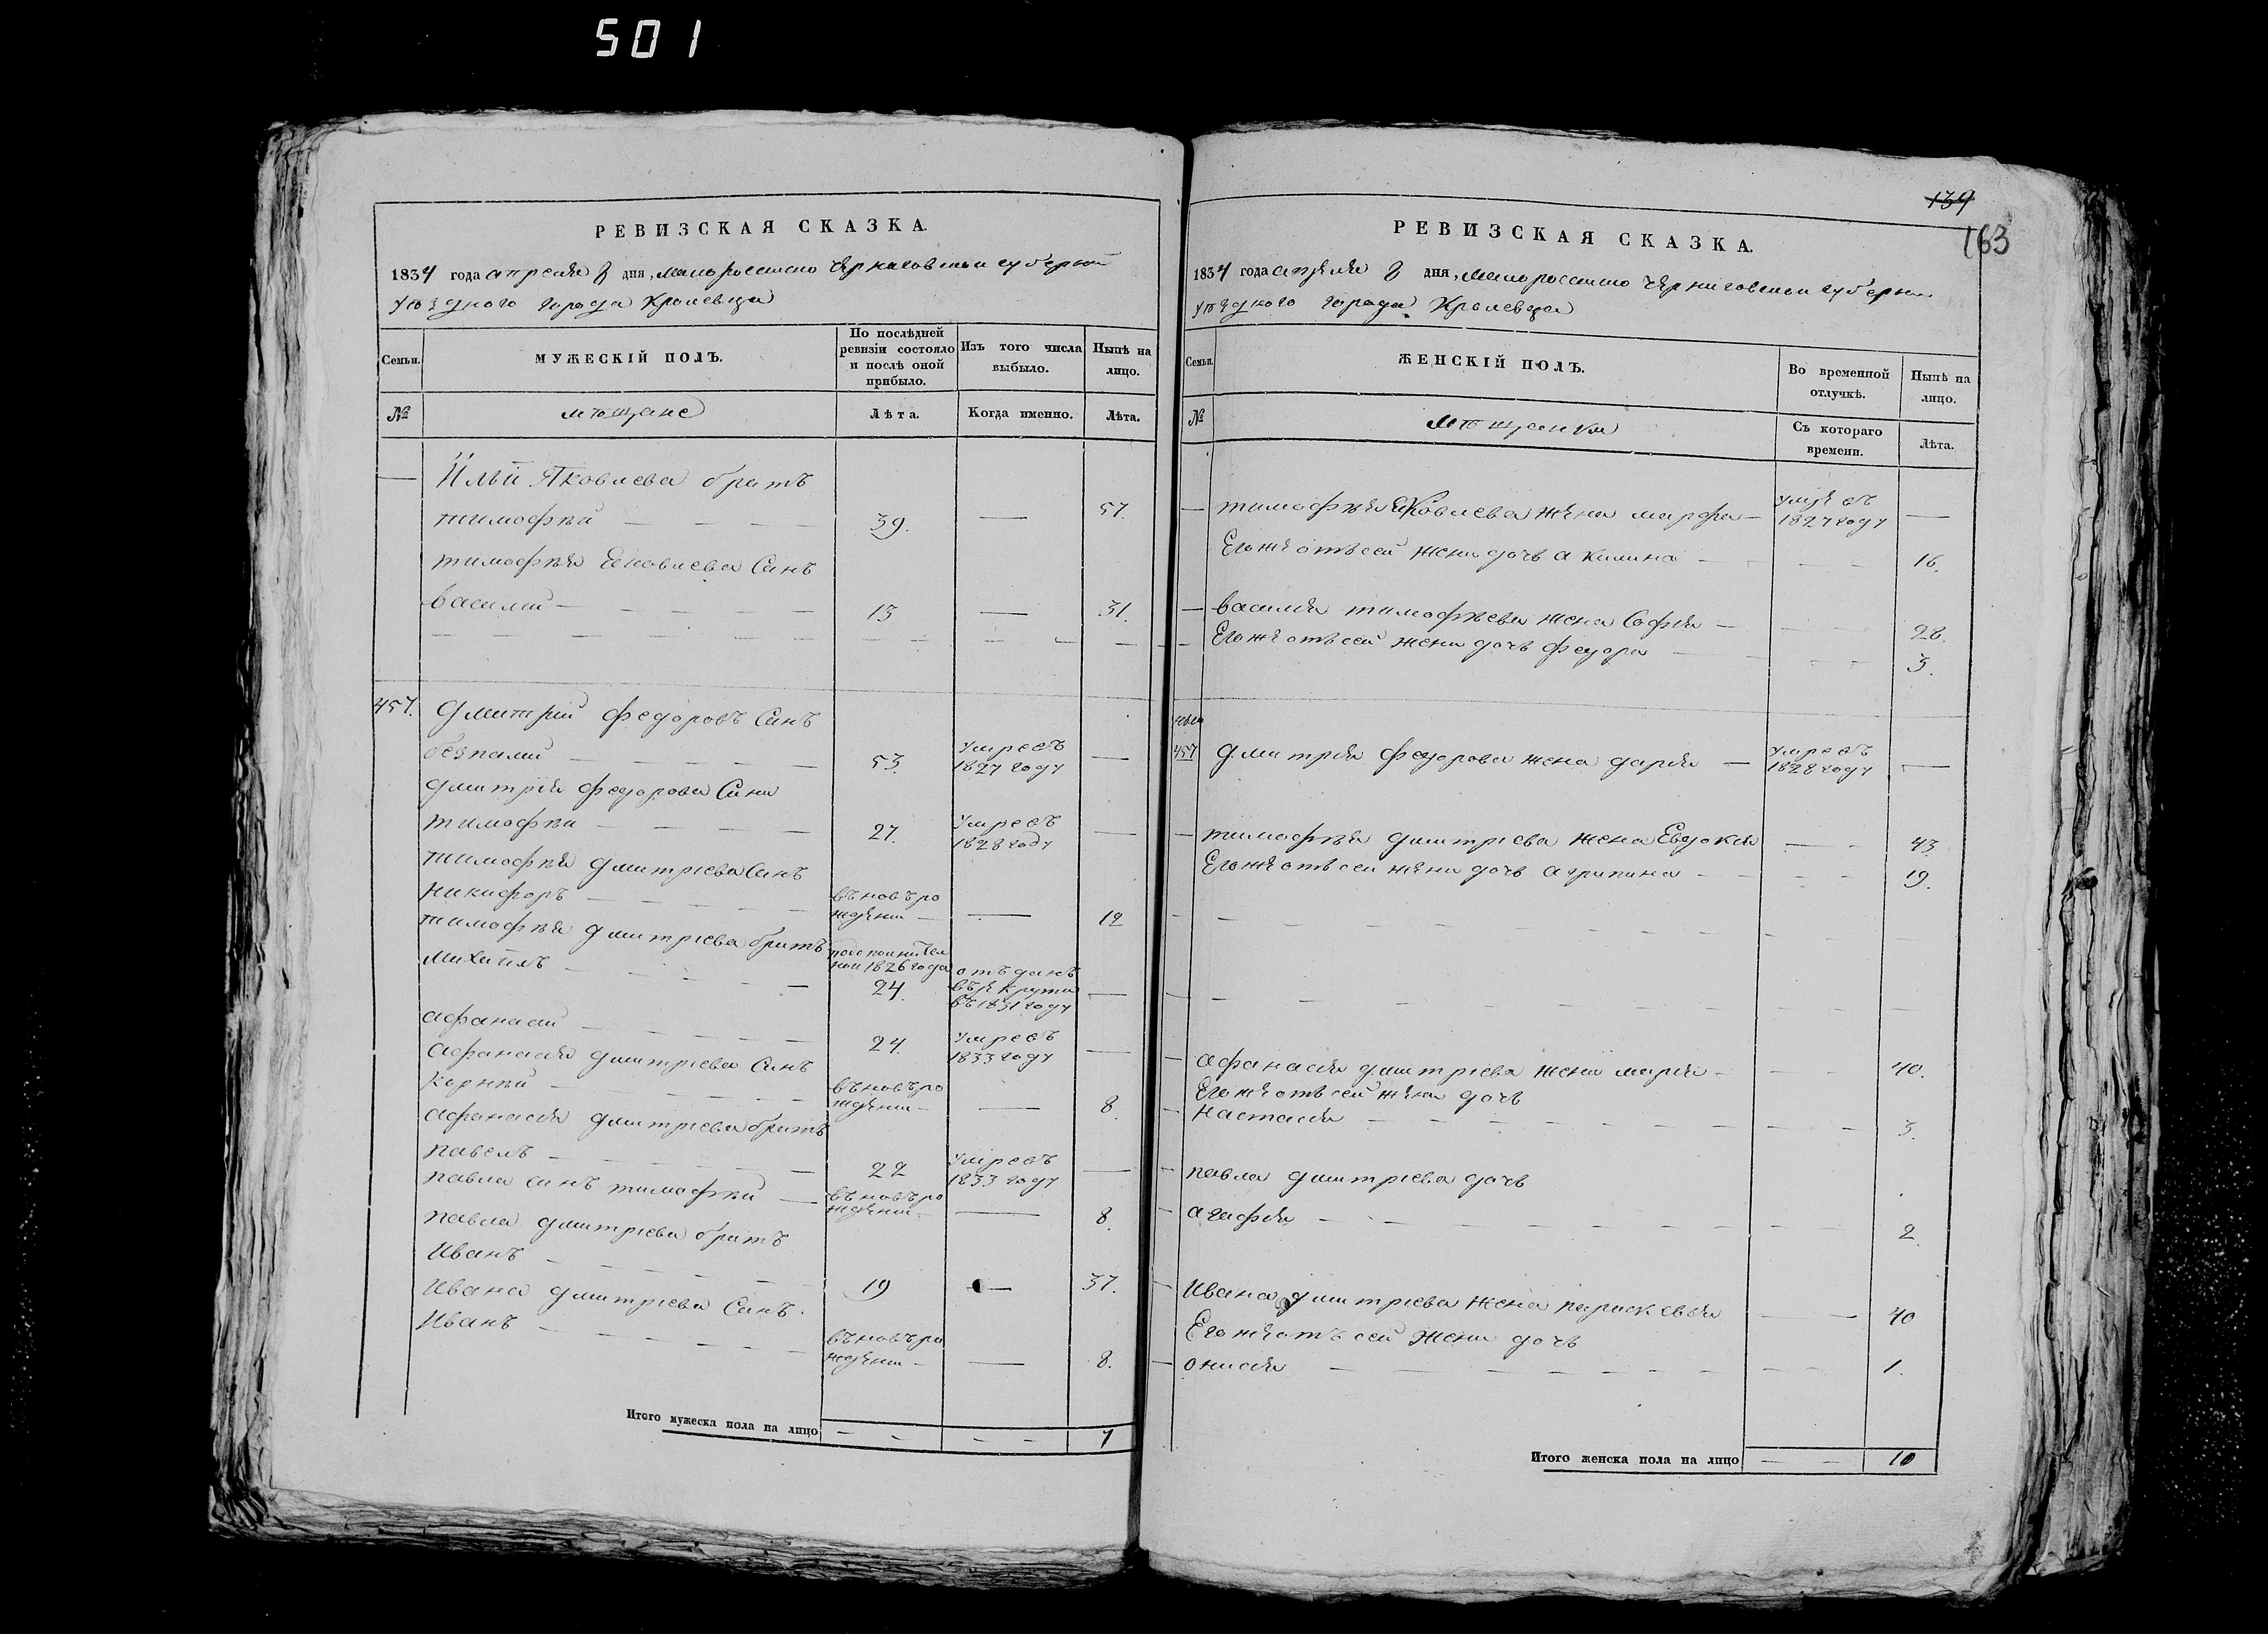 501
РЕВИЗСКАЯ СКАЗКА.
1834 года апреля 8 дня, Малоросiйско Черниговской губернiй
уѣзднаго города Кролевца
Семьи.
МУЖЕСКIЙ ПОЛЪ.
По послѣдней ревизiи состояло и послѣ оной прибыло.
Изъ того числа выбыло.
Нынѣ на лицо.
№
мѣщане
Лѣта.
Когда именно.
Лѣта.
— Ильи Яковлева братъ
тимофѣй — 39. — 57.
тимофѣя Яковлева Синъ
василий — 13 — 31.
457. Дмитрий федоровъ Синъ
безпалий — 53. умревъ 1827 году —
дмитрiя федорова Сини
тимофѣй — 27. умревъ 1828 году —
тимофѣя дмитрiева Синъ
никифоръ — въ новъ рождении — — 12
тимофѣя дмитрiева братъ
михаилъ — 1826 года 24. отъданъ въ рекрути въ 1831 году —
афанасий — 24. умревъ 1833 году —
афанасiя дмитрiева Синъ
корнѣй — въ новъ рождении — — 8.
афанасiя дмитрiева братъ
павелъ — 22 умревъ 1833 году —
павла синъ тимофѣй — въ новъ рождении — — 8.
павла дмитрiева братъ
Иванъ — 19 — 37.
Ивана дмитрiева Синъ.
Иванъ — въ новъ рождении — — 8.
Итого мужеска пола на лицо — — 7
139
163
РЕВИЗСКАЯ СКАЗКА.
1834 года апреля 8 дня, Малоросiйско Черниговской губерни
уѣзднаго города Кролевца
Семьи.
ЖЕНСКIЙ ПОЛЪ.
Во временной отлучкѣ.
Нынѣ на лицо.
№
мѣщанки
Съ котораго времени.
Лѣта.
— тимофѣя Яковлева жена марфа — умревъ 1827 году —
Его же отъ сей жени дочь акилина — 16.
— василiя тимофѣева жена Софiя — 28.
— Его же отъ сей жени дочь федора — 3.
457 дмитрiя федорова жена дарiя — умревъ 1828 году —
— тимофѣя дмитрiева жена Евдокiя — 43.
Его же отъ сей жени дочь агрипина — 19.
— афанасiя дмитрiева жена марiя — 40.
Его же отъ сей жени дочь
— настасiя — 3.
— павла дмитрiева дочь
— агафiя — 2.
— Ивана дмитрiева жена парискевiя — 40
Его же отъ сей жени дочь
— онисiя — 1.
Итого женска пола на лицо — — 10